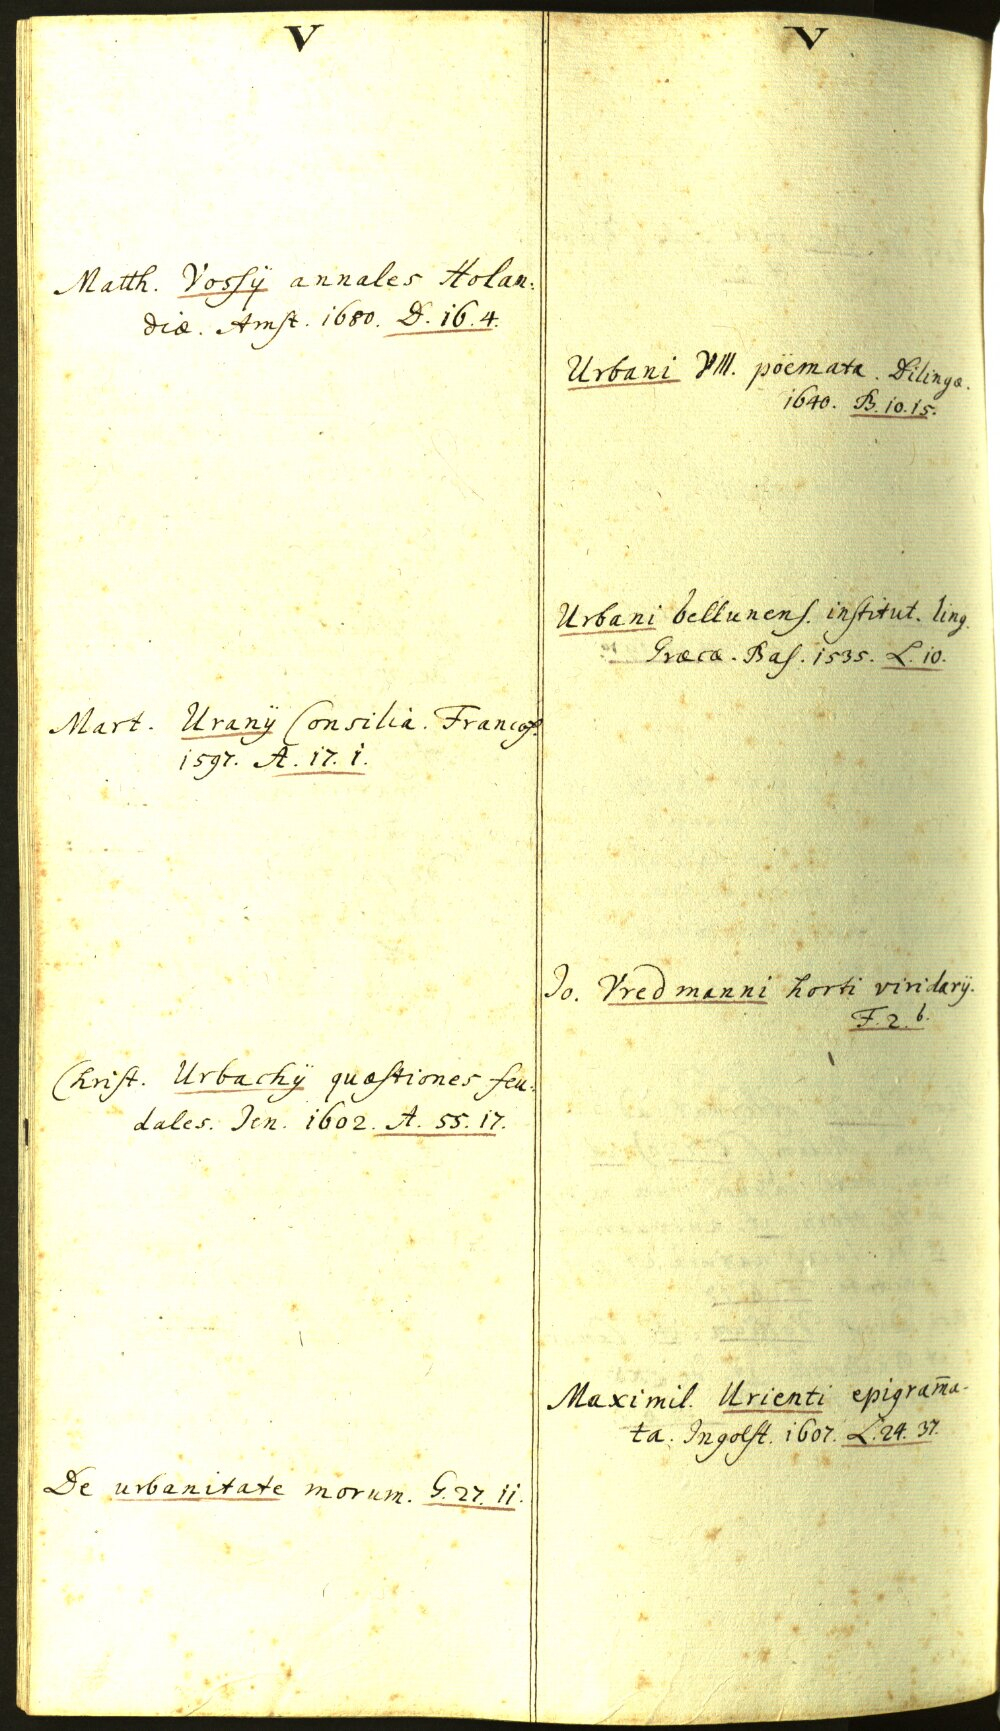 V
Matth. Vossÿ annales Holan:
diæ. Amst. 1680. D. 16. 4.
Mart. Uranÿ Consilia. Francof.
1597. A. 17. 1.
Christ. Urbachÿ quæstiones feu:
dales. Jen. 1602. A. 55. 17.
De urbanitate morum. G. 27. 11.
V
Urbani VIII. poëmata. Dilingæ.
1640. B. 10. 15.
Urbani bellunens. institut. ling.
Græcæ. Bas. 1535. L. 10.
Jo. Vredmanni horti viridarÿ.
F. 2. b.
Maximil. Urienti epigram̄a-
ta. Ingolst. 1607. L. 24. 37.